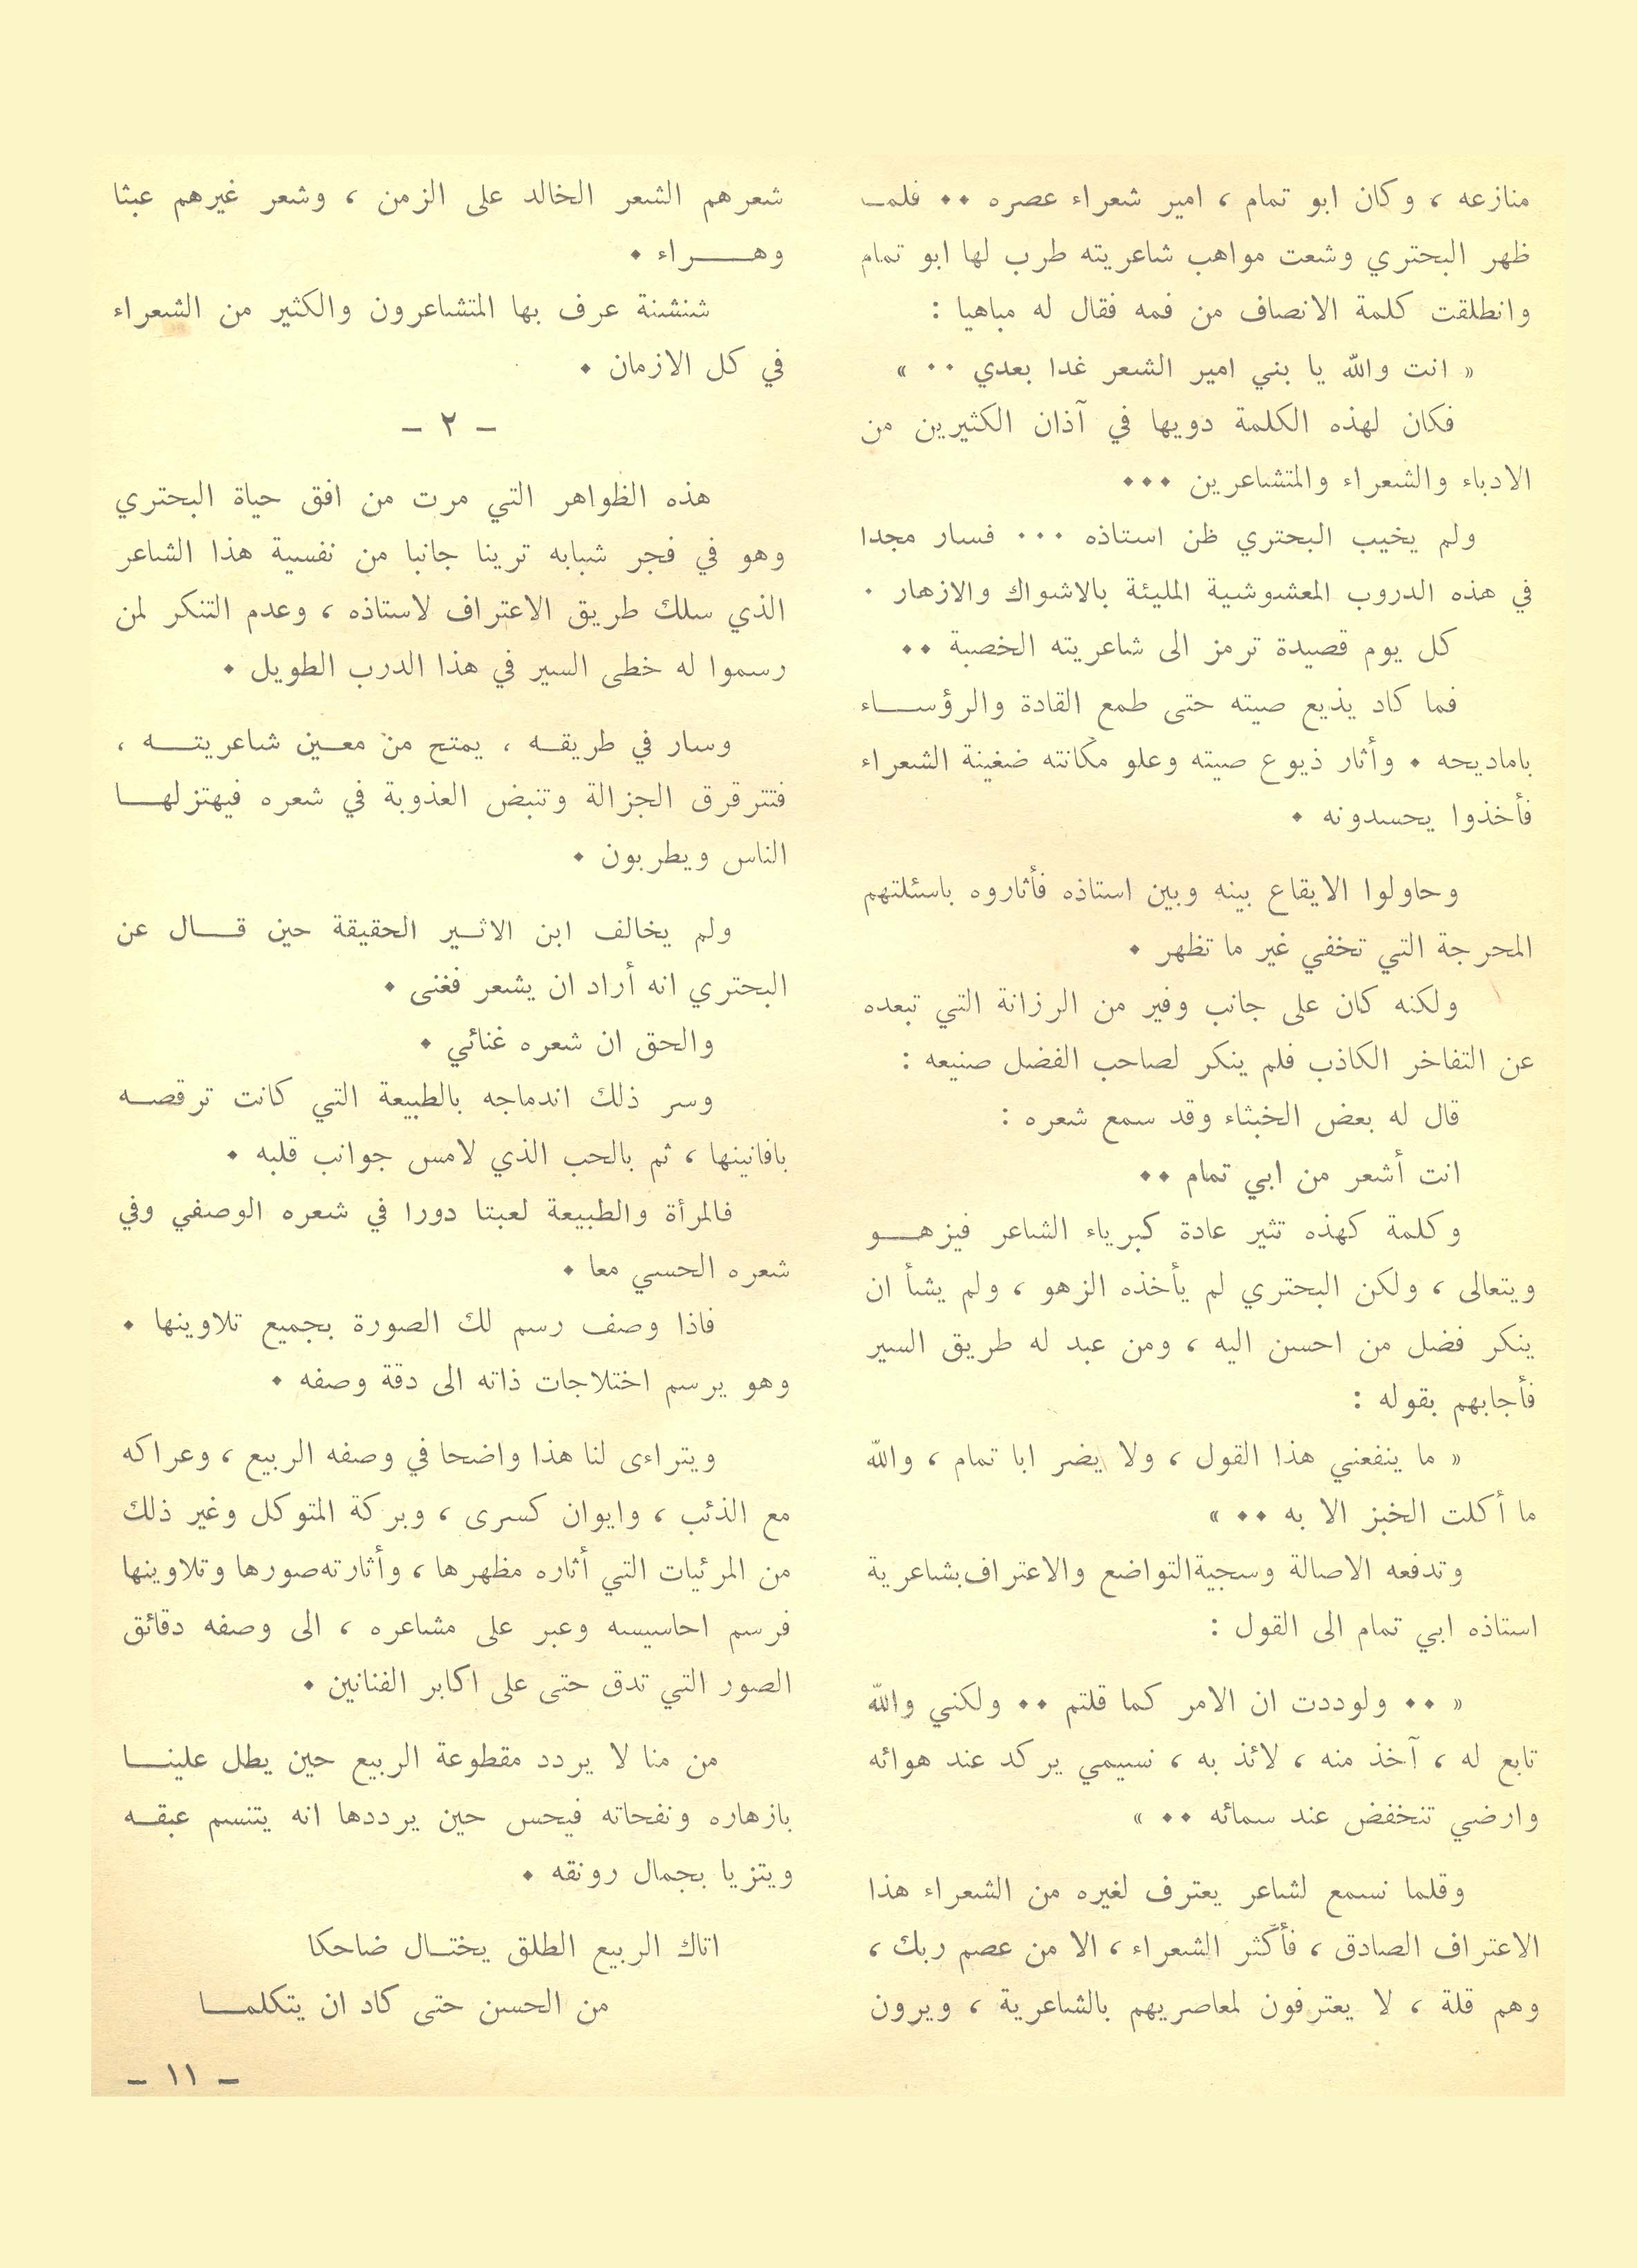 منازعه ، وكان ابو تمام ، امير شعراء عصره ٠٠ فلمــ
ظهر البحتري وشعت مواهب شاعريته طرب لها ابو تمام
وانطلقت كلمة الانصاف من فمه فقال له مباهيا :
« انت والله يا بني امير الشعر غدا بعدي ٠٠ »
فكان لهذه الكلمة دويها في آذان الكثيرين من
الادباء والشعراء والمتشاعرين ٠٠٠
ولم يخيب البحتري ظن استاذه ٠٠٠ فسار مجدا
في هذه الدروب المعشوشبة المليئة بالاشواك والازهار ٠
كل يوم قصيدة ترمز الى شاعريته الخصبة ٠٠
فما كاد يذيع صيته حتى طمع القادة والرؤســــاء
باماديحه ٠ وأثار ذيوع صيته وعلو مكانته ضغينة الشعراء
فأخذوا يحسدونه ٠
وحاولوا الايقاع بينه وبين استاذه فأثاروه باسئلتهم
المحرجة التي تخفي غير ما تظهر ٠
ولكنه كان على جانب وفير من الرزانة التي تبعده
عن التفاخر الكاذب فلم ينكر لصاحب الفضل صنيعه :
قال له بعض الخبثاء وقد سمع شعره :
انت أشعر من ابي تمام ٠٠
وكلمة كهذه تثير عادة كبرياء الشاعر فيزهــــو
ويتعالى ، ولكن البحتري لم يأخذه الزهو ، ولم يشأ ان
ينكر فضل من احسن اليه ، ومن عبد له طريق السير
فأجابهم بقوله :
« ما ينفعني هذا القول ، ولا يضر ابا تمام ، والله
ما أكلت الخبز الا به ٠٠ »
وتدفعه الاصالة وسجية التواضع والاعتراف بشاعرية
استاذه ابي تمام الى القول :
« ٠٠ ولوددت ان الامر كما قلتم ٠٠ ولكني والله
تابع له ، آخذ منه ، لائذ به ، نسيمي يركد عند هوائه
وارضي تنخفض عند سمائه ٠٠ »
وقلما نسمع لشاعر يعترف لغيره من الشعراء هذا
الاعتراف الصادق ، فأكثر الشعراء ، الا من عصم ربك ،
وهم قلة ، لا يعترفون لمعاصريهم بالشاعرية ، ويرون
شعرهم الشعر الخالد على الزمن ، وشعر غيرهم عبثا
وهــــراء ٠
شنشنة عرف بها المتشاعرون والكثير من الشعراء
في كل الازمان ٠
– ٢ –
هذه الظواهر التي مرت من افق حياة البحتري
وهو في فجر شبابه ترينا جانبا من نفسية هذا الشاعر
الذي سلك طريق الاعتراف لاستاذه ، وعدم التنكر لمن
رسموا له خطى السير في هذا الدرب الطويل ٠
وسار في طريقــه ، يمتح من معــين شاعريتــــه ،
فتترقرق الجزالة وتنبض العذوبة في شعره فيهتز لهــــا
الناس ويطربون ٠
ولم يخالف ابن الاثــير الحقيقة حين قــــال عن
البحتري انه أراد ان يشعر فغنى ٠
والحق ان شعره غنائي ٠
وسر ذلك اندماجه بالطبيعة التي كانت ترقصــه
بافانينها ، ثم بالحب الذي لامس جوانب قلبه ٠
فالمرأة والطبيعة لعبتا دورا في شعره الوصفي وفي
شعره الحسي معا ٠
فاذا وصف رسم لك الصورة بجميع تلاوينها ٠
وهو يرسم اختلاجات ذاته الى دقة وصفه ٠
ويتراءى لنا هذا واضحا في وصفه الربيع ، وعراكه
مع الذئب ، وايوان كسرى ، وبركة المتوكل وغير ذلك
من المرئيات التي أثاره مظهرها ، وأثارته صورها وتلاوينها
فرسم احاسيسه وعبر على مشاعره ، الى وصفه دقائق
الصور التي تدق حتى على اكابر الفنانين ٠
من منا لا يردد مقطوعة الربيع حين يطل علينــــا
بازهاره ونفحاته فيحس حين يرددها انه يتنسم عبقــه
ويتزيا بجمال رونقه ٠
اتاك الربيع الطلق يختــال ضاحكا
من الحسن حتى كاد ان يتكلمــــا
– ١١ –